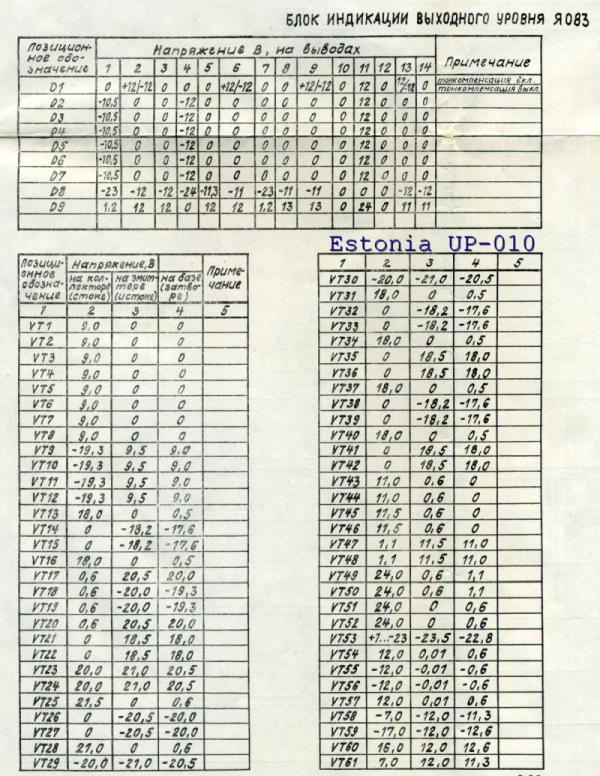 БЛОК ИНДИКАЦИИ ВЫХОДНОГО УРОВНЯ Я083
Позицион- Напряжение В, на выводах Примечание
ное обо-
значение 1 2 3 4 5 6 7 8 9 10 11 12 13 14
D1 0 +12/-12 0 0 0 +12/-12 0 0 +12/-12 0 12 0 12/-12 0 тонкомпенсация вкл. тонкомпенсация выкл.
D2 -10,5 0 0 -12 0 0 0 0 0 0 12 0 0 0
D3 -10,5 0 0 -12 0 0 0 0 0 0 12 0 0 0
D4 -10,5 0 0 -12 0 0 0 0 0 0 12 0 0 0
D5 -10,5 0 0 -12 0 0 0 0 0 0 12 0 0 0
D6 -10,5 0 0 -12 0 0 0 0 0 0 12 0 0 0
D7 -10,5 0 0 -12 0 0 0 0 0 0 12 0 0 0
D8 -23 -12 -12 -24 -11,3 -11 -23 -11 -11 0 0 0 -12 -12
D9 1,2 12 12 0 12 12 1,2 13 13 0 24 0 11 11
Estonia UP-010
Позици- Напряжение, В Приме-
онное на кол- на эмит- на базе чание
обозна- лекторе тере (затво-
чение (стоке) (истоке) ре)
1 2 3 4 5
VT1 9,0 0 0
VT2 9,0 0 0
VT3 9,0 0 0
VT4 9,0 0 0
VT5 9,0 0 0
VT6 9,0 0 0
VT7 9,0 0 0
VT8 9,0 0 0
VT9 -19,3 9,5 9,0
VT10 -19,3 9,5 9,0
VT11 -19,3 9,5 9,0
VT12 -19,3 9,5 9,0
VT13 18,0 0 0,5
VT14 0 -18,2 -17,6
VT15 0 -18,2 -17,6
VT16 18,0 0 0,5
VT17 0,6 20,5 20,0
VT18 0,6 -20,0 -19,3
VT19 0,6 -20,0 -19,3
VT20 0,6 20,5 20,0
VT21 0 18,5 18,0
VT22 0 18,5 18,0
VT23 20,0 21,0 20,5
VT24 20,0 21,0 20,5
VT25 21,5 0 0,6
VT26 0 -20,5 -20,0
VT27 0 -20,5 -20,0
VT28 21,0 0 0,6
VT29 -20,0 -21,0 -20,5
1 2 3 4 5
VT30 -20,0 -21,0 -20,5
VT31 18,0 0 0,5
VT32 0 -18,2 -17,6
VT33 0 -18,2 -17,6
VT34 18,0 0 0,5
VT35 0 18,5 18,0
VT36 0 18,5 18,0
VT37 18,0 0 0,5
VT38 0 -18,2 -17,6
VT39 0 -18,2 -17,6
VT40 18,0 0 0,5
VT41 0 18,5 18,0
VT42 0 18,5 18,0
VT43 11,0 0,6 0
VT44 11,0 0,6 0
VT45 11,5 0,6 0
VT46 11,5 0,6 0
VT47 1,1 11,5 11,0
VT48 1,1 11,5 11,0
VT49 24,0 0,6 1,1
VT50 24,0 0,6 1,1
VT51 24,0 0 0,6
VT52 24,0 0 0,6
VT53 +1...-23 -23,5 -22,8
VT54 12,0 0,01 0,6
VT55 -12,0 -0,01 -0,6
VT56 -12,0 -0,01 -0,6
VT57 12,0 0,01 0,6
VT58 -7,0 -12,0 -11,3
VT59 -17,0 -12,0 -12,6
VT60 16,0 12,0 12,6
VT61 7,0 12,0 11,3